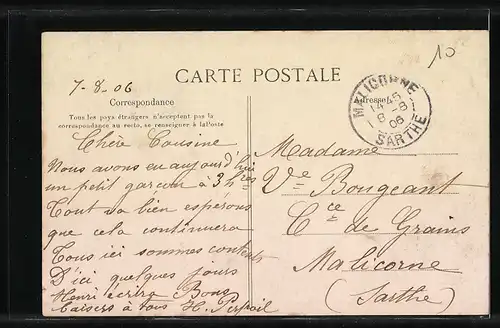 10
7-8-06
CARTE POSTALE
Correspondance
Tous les pays étrangers n'acceptent pas la
correspondance au recto, se renseigner à la Poste
Adresse
MALICORNE
14 45
8 -8
06
SARTHE
Chère Cousine
Nous avons eu aujourd'hui
un petit garçon à 3 hres
Tout va bien esperons
que cela continuera
Tous ici sommes contents
D'ici quelques jours
Henri écrira Bons
baisers à tous H.
Madame
Vve Bougeant
Cce de Grains
Malicorne
(Sarthe)